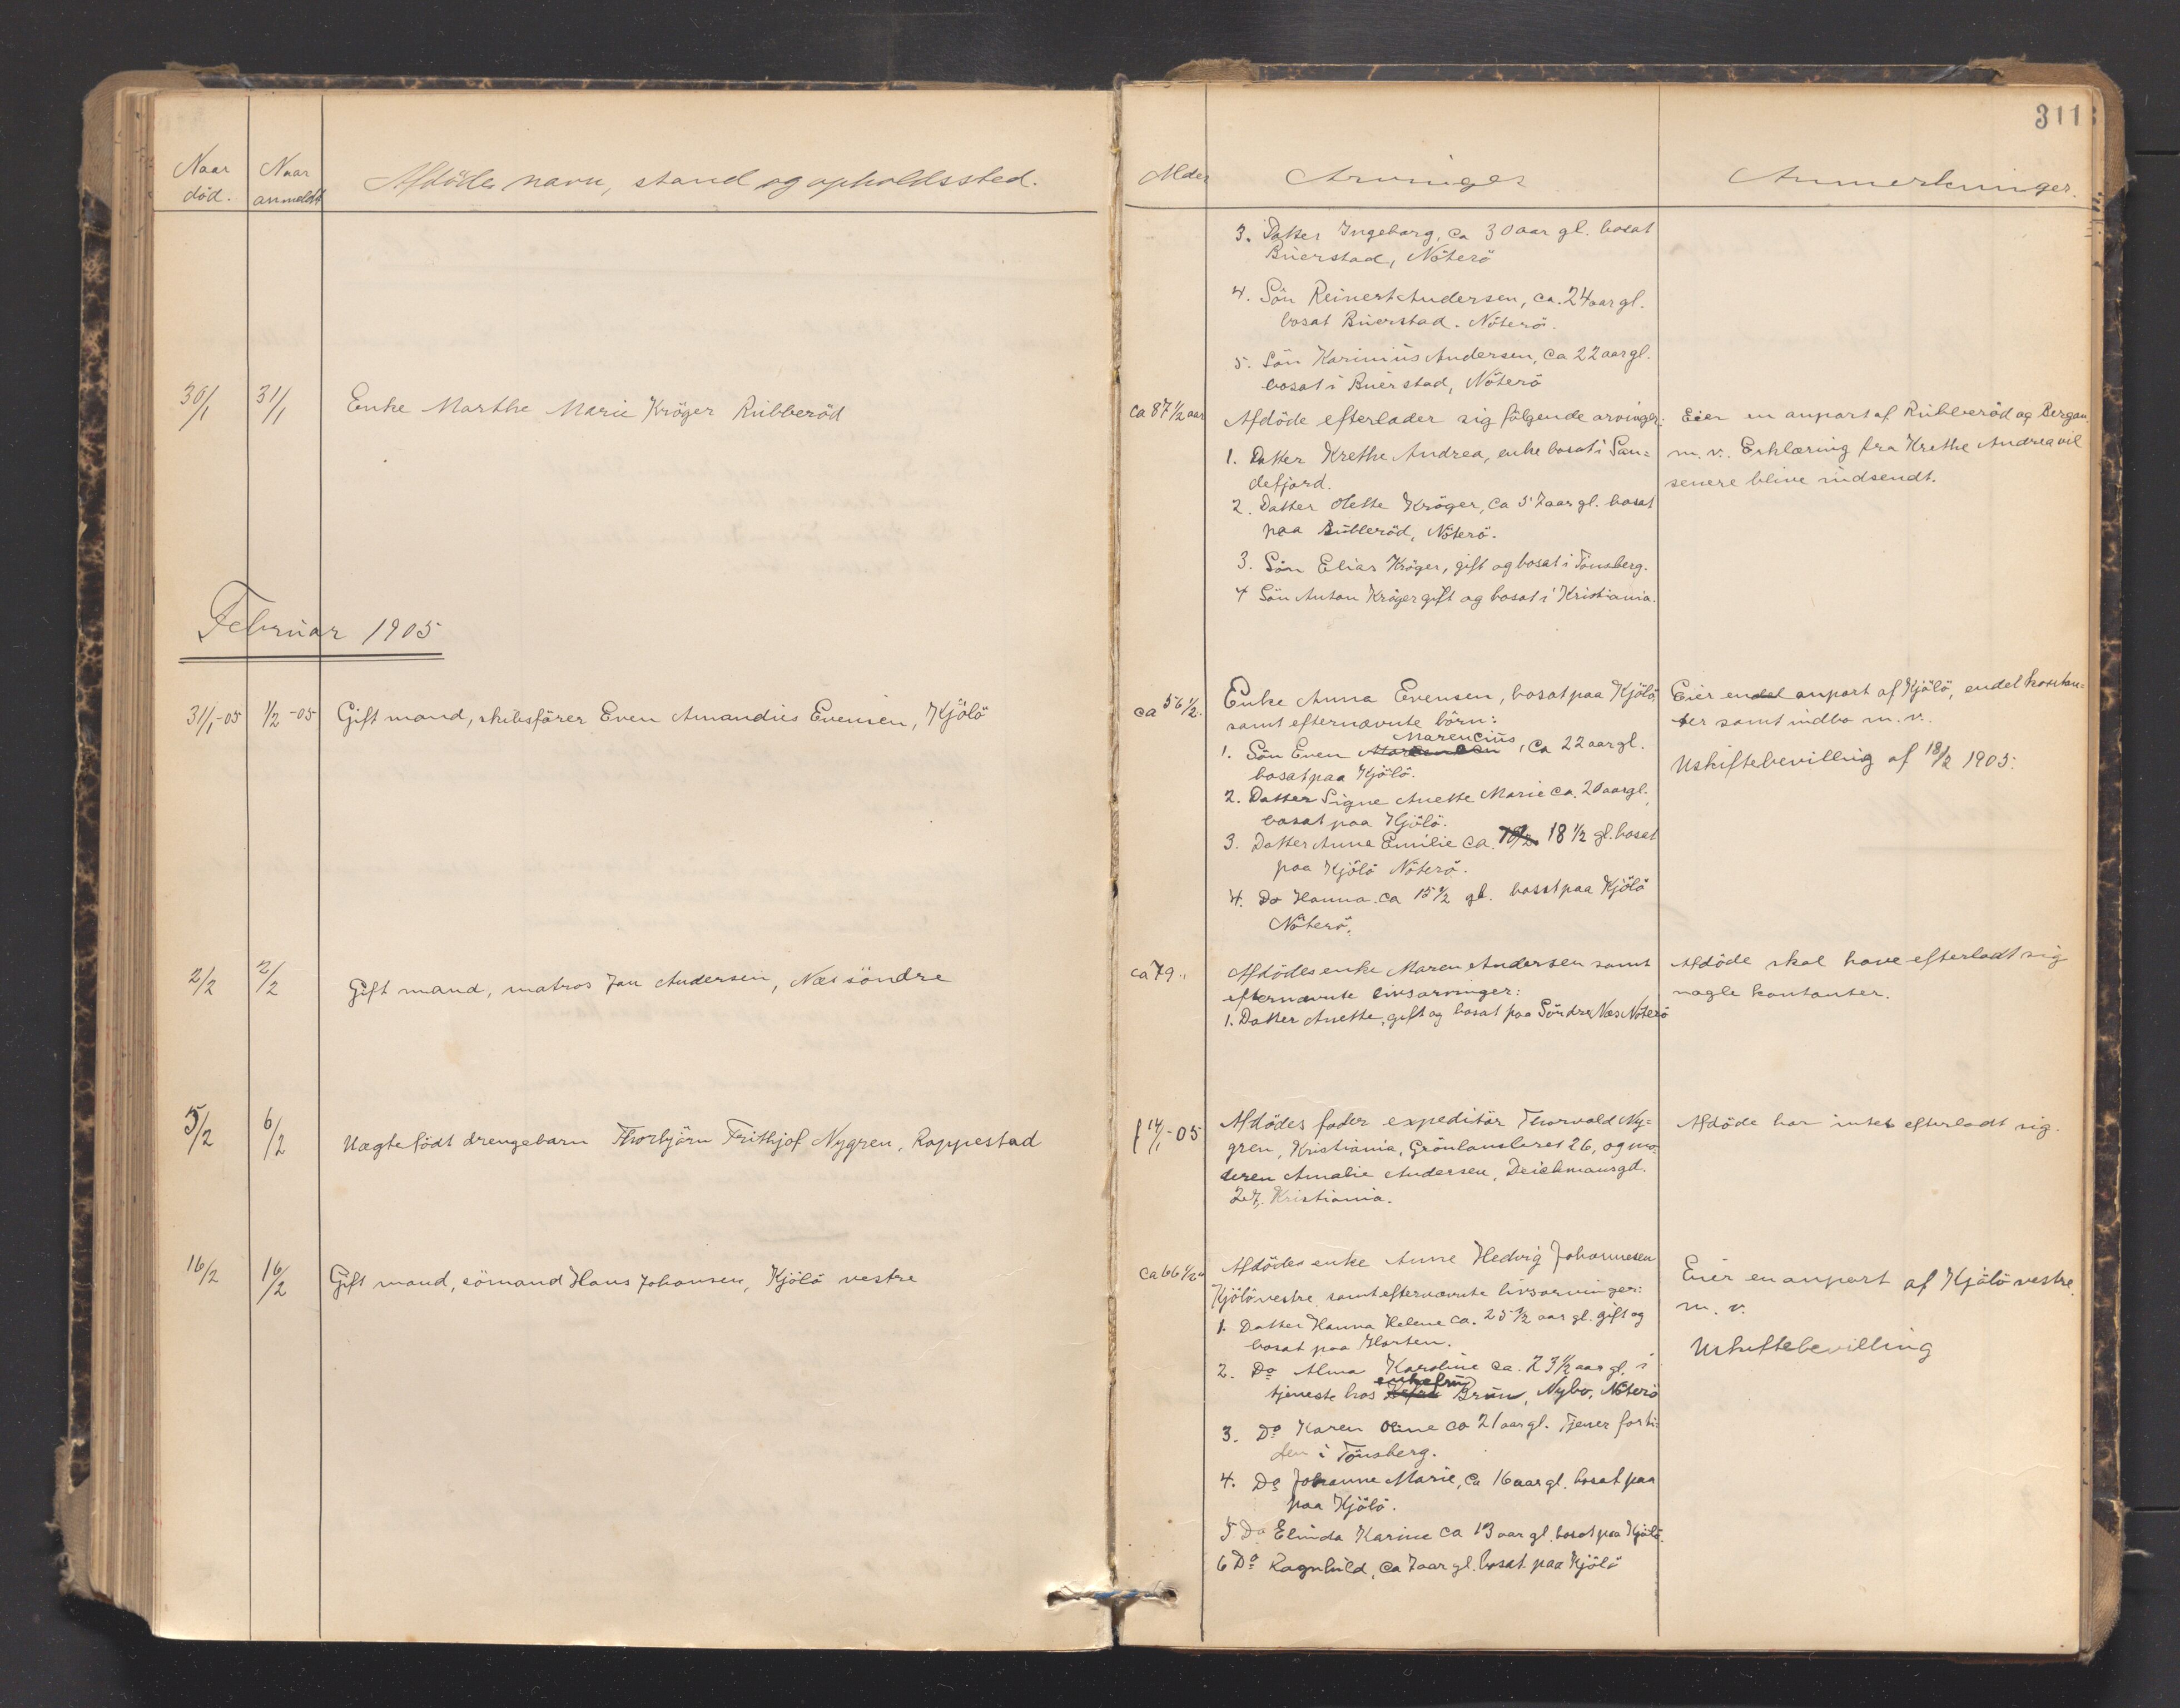 311
Naar død.
Naar anmeldt
Afdödes navn, stand og opholdssted.
Alder
Arvinger
Anmerkninger.
3. Datter Ingeborg, ca 30 aar gl. bosat
Buerstad, Nöterö
4. Sön Reinert Andersen, ca. 24 aar gl.
bosat Buerstad. Nöterö.
5. Sön Karinius Andersen, ca 22 aar gl.
bosat i Buerstad, Nöterö
30/1
31/1
Enke Marthe Marie Kröger Rubberöd
ca 87 1/2 aar
Afdöde efterlader sig fölgende arvinger:
1. Datter Krethe Andrea, enke bosat i San=
defjord.
2. Datter Olette Kröger, ca 57 aar gl. bosat
paa Rubberöd, Nöterö.
3. Sön Elias Kröger, gift og bosat i Tönsberg.
4 Sön Anton Kröger gift og bosat i Kristiania.
Eier en anpart af Rubberöd og Bergan
m. v. Erklæring fra Krethe Andrea vil
senere blive indsendt.
Februar 1905
31/1-05
1/2-05
Gift mand, skibsförer Even Amandus Evensen, Kjölö
ca 56 1/2.
Enke Anna Evensen, bosat paa Kjölö
samt efternævnte börn:
Marencius
1. Sön Even , ca 22 aar gl.
bosat paa Kjölö.
2. Datter Signe Anette Marie ca. 20 aar gl.
bosat paa Kjölö.
3. Datter Anna Emilie ca. 18 1/2 gl. bosat
paa Kjölö Nöterö.
4. Do Hanna. ca 15 1/2 gl. bosat paa Kjölö
Nöterö.
Eier endel anpart af Kjölö, endel kontan=
ter samt indbo m. v.
Uskiftebevilling af 18/2 1905.
2/2
2/2
Gift mand, matros Jan Andersen, Næs söndre
ca 79 "
Afdödes enke Maren Andersen samt
efternævnte livsarvinger:
1. Datter Anette, gift og bosat paa Söndre Næs Nöterö
Afdöde skal have efterladt sig
nogle kontanter.
5/2
6/2
Uægte födt drengebarn Thorbjörn Frithjof Nygren, Roppestad
f 14/1-05
Afdödes fader expeditör Thorvald Ny=
gren, Kristiania, Grönlandsleret 26, og mo=
deren Amalie Andersen, Deichmansgd.
27, Kristiania.
Afdöde har intet efterladt sig.
16/2
16/2
Gift mand, sömand Hans Johansen, Kjölö vestre
ca 66 1/2 "
Afdödes enke Anne Hedvig Johannesen
Kjölö vestre samt efternævnte livsarvinger:
1. Datter Hanna Helene ca. 25 1/2 aar gl. gift og
bosat paa Horten.
2. Do Alma Karoline ca. 23 1/2 aar gl. i
enkefru
tjeneste hos Brun, Nybo, Nöterö
3. Do Karen Oline ca 21 aar gl. Tjener forti=
den i Tönsberg.
4. Do Johanne Marie, ca 16 aar gl. bosat paa
paa Kjölö.
5 Do Elinda Karine ca 13 aar gl. bosat paa Kjölö.
6 Do Ragnhild, ca 7 aar gl. bosat paa Kjölö
Eier en anpart af Kjölö vestre
m. v.
Uskiftebevilling